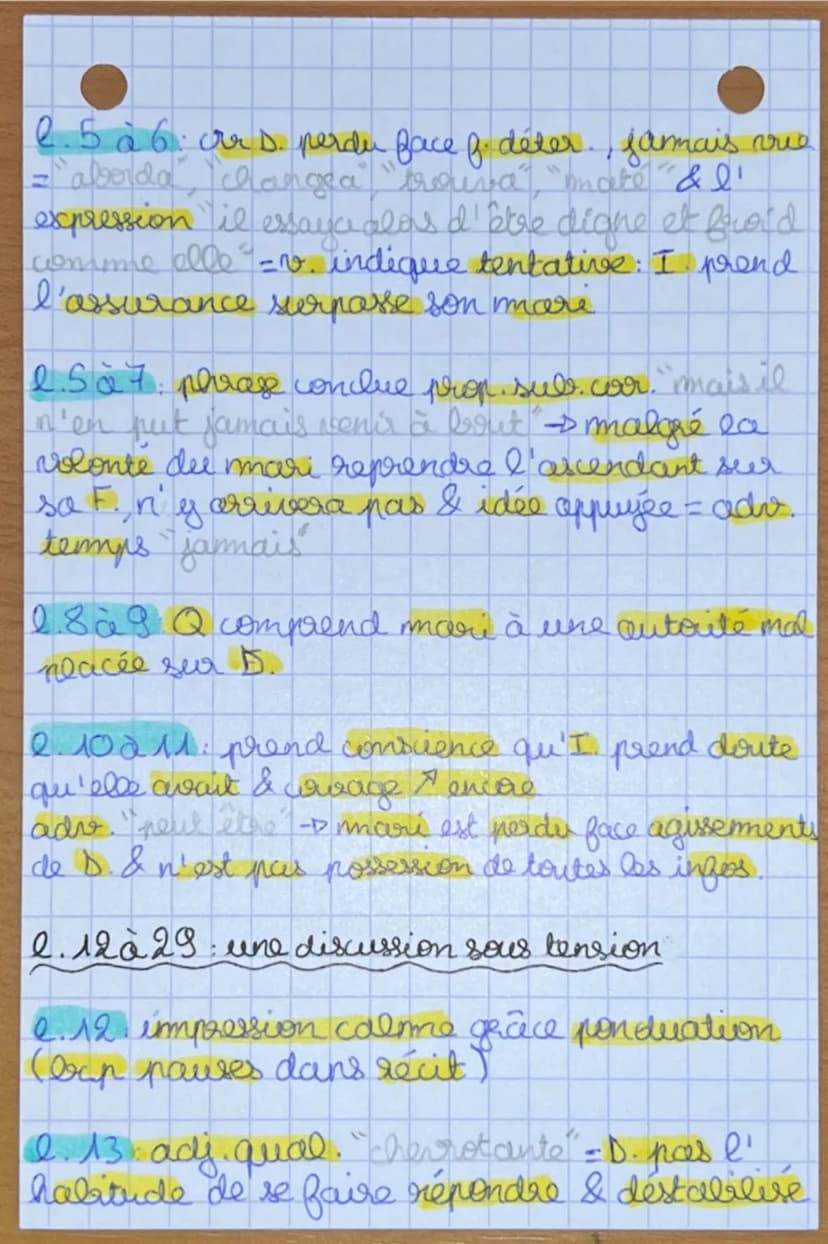 l. 5 à 6 : D. perdu face f. déter., jamais vue
= "aborda", "changea", "trouva", "maté" & l'
expression "il essaya alors d'être digne et froid
comme elle" = v. indique tentative : I. prend
l'assurance surpasse son mari
l. 5 à 7 : phrase conclue prop. sub. coor. "mais il
n'en put jamais venir à bout" → malgré la
volonté du mari reprendre l'ascendant sur
sa F., n'y arrivera pas & idée appuyée = adv.
temps "jamais"
l. 8 à 9 Q comprend mari à une autorité mal
placée sur D.
l. 10 à 11 : prend conscience qu'I. prend doute
qu'elle avait & courage ↗ encore
adv. "peut être" → mari est perdu face agissements
de D. & n'est pas possession de toutes les infos.
l. 12 à 29 : une discussion sous tension
l. 12 : impression calme grâce ponduation
(bcp pauses dans récit)
l. 13 : adj. qual. "chevrotante" = D. pas l'
habitude de se faire répondre & déstabilisé